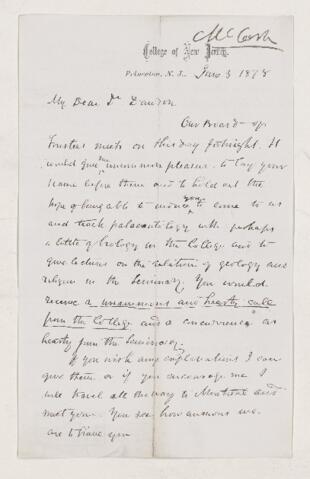 McCosh
College of New Jersey.
Princeton, N. J., June 3 1878
My Dear Dr Dawson.
Our Board of
Trustees meets on this day fortnight. It
would give me uncommon pleasure to lay your
name before them and to hold out the
hope of being able to you to come to us
and teach palaeontology with perhaps
a little of biology in the College and to
give lectures on the relation of geology and
religion in the Seminary. You would
receive a unanimous and hearty call
from the College and a concurrence as
hearty from the Seminary.
If you wish any explanations I can
give them or if you encourage me I
will travel all the way to Montreal and
meet you. You see how anxious we
are to have you